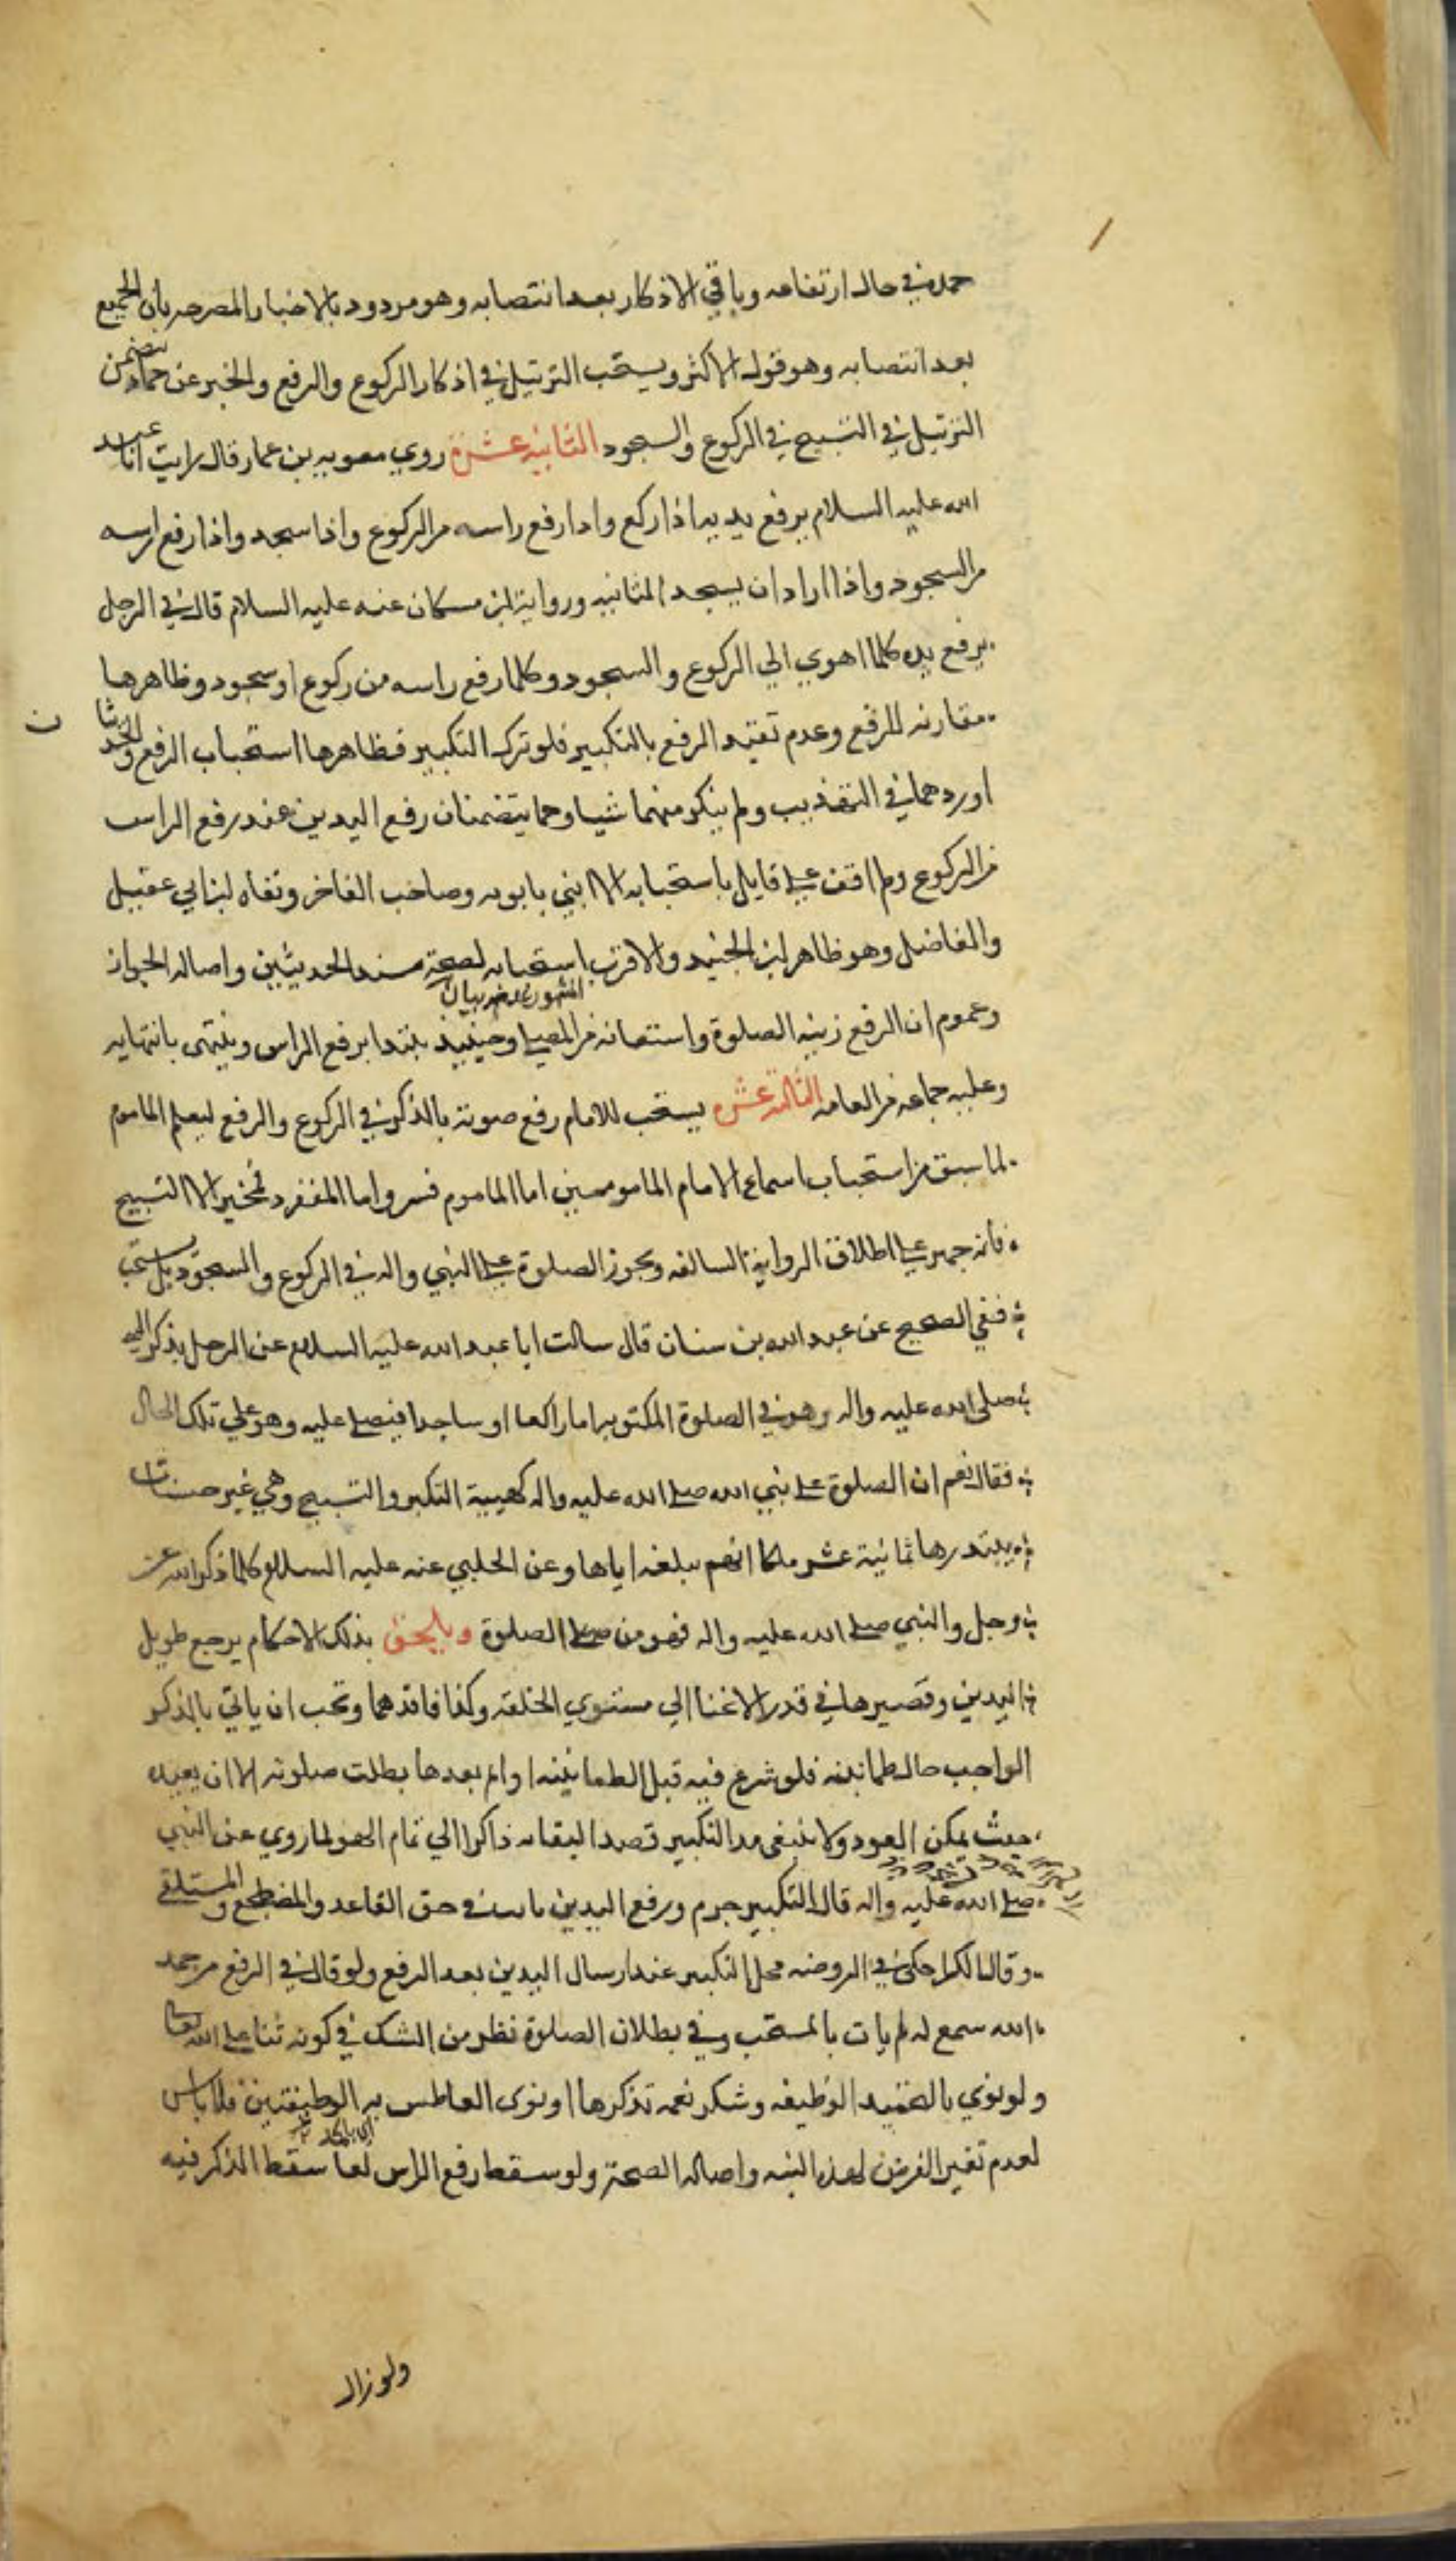 حمده في حال ارتفاعه وباقي الاذكار بعد انتصابه وهو مردود بالاخبار المصرحه بان الجميع
بعد انتصابه وهو قول الاكثر ويستحب الترتيل في اذكار الركوع والرفع والخبر عن حماد يتضمن
الترتيل في التسبيح في الركوع والسجود الثانيه عشرة روي معويه بن عمار قال رايت ابا عبد
الله عليه السلام يرفع يديه اذا ركع واذا رفع راسه من الركوع واذا سجد واذا رفع راسه
من السجود واذا اراد ان يسجد الثانيه ورواية ابن مسكان عنه عليه السلام قال في الرجل
يرفع يده كلما اهوي الي الركوع والسجود وكلما رفع راسه من ركوع او سجود وظاهرها
مقارنه للرفع وعدم تقيد الرفع بالتكبير فلو ترك التكبير فظاهرها استحباب الرفع والحديثا
ن
اوردهما في التهذيب ولم ينكر منهما شيا وهما يتضمنان رفع اليدين عند رفع الراس
من الركوع ولم اقف علي قايل باستحبابه الا ابني بابويه وصاحب الفاخر ونفاه ابن ابي عقيل
والفاضل وهو ظاهر ابن الجنيد والاقرب استحبابه لصحة سند الحديثين واصاله الجواز
وعموم ان الرفع زينه الصلوة واستعانه من المصلي وحينيذ يبتدا برفع الراس وينتهي بانتهايه
وعليه جماعه من العامه الثالثه عشره يستحب للامام رفع صوته بالذكر في الركوع والرفع ليعلم الماموم
لما سبق من استحباب اسماع الامام المامومين اما الماموم فسر واما المنفرد فمخير الا التسبيح
فانه جهر علي اطلاق الرواية السالفه ويجوز الصلوة علي النبي واله في الركوع والسجود بل يستحب
ففي الصحيح عن عبد الله بن سنان قال سالت ابا عبد الله عليه السلام عن الرجل يذكر النبي
صلي الله عليه واله وهو في الصلوة المكتوبه اما راكعا او ساجدا فيصلي عليه وهو علي تلك الحال
فقال نعم ان الصلوة علي نبي الله صلي الله عليه واله كهيية التكبير والتسبيح وهي عشر حسنات
يبتدرها ثمانية عشر ملكا ايهم يبلغه اياها وعن الحلبي عنه عليه السلام كلما ذكر الله عز
وجل والنبي صلي الله عليه واله فهو من الصلوة ويلحق بذلك الاحكام يرجع طويل
اليدين وقصيرها في قدر الانحنا الي مستوي الخلقه وكذا فاقدهما ويجب ان ياتي بالذكر
الواجب حال طمانينه فلو شرع فيه قبل الطمانينه او اتم بعدها بطلت صلوته الا ان يعيده
حيث يمكن العود ولا ينبغي مد التكبير قصدا لبقايه ذاكرا الي تمام الهو لما روي عن النبي
صلي الله عليه واله قال التكبير جزم ورفع اليدين ثابت في حق القاعد والمضطجع والمستلقي
وقال الكراجكي في الروضه محل التكبير عند ارسال اليدين بعد الرفع ولو قال في الرفع من حمد
الله سمع له لم يات بالمستحب وفي بطلان الصلوة نظر من الشك في كونه ثنا علي الله تعا
ولو نوي بالتحميد الوظيفه وشكر نعمه تذكرها او نوي العاطس به الوظيفتين فلا باس
لعدم تغير الغرض لهذه النيه واصاله الصحة ولو سقط رفع الراس لعا سقط الذكر فيه
ولو زال